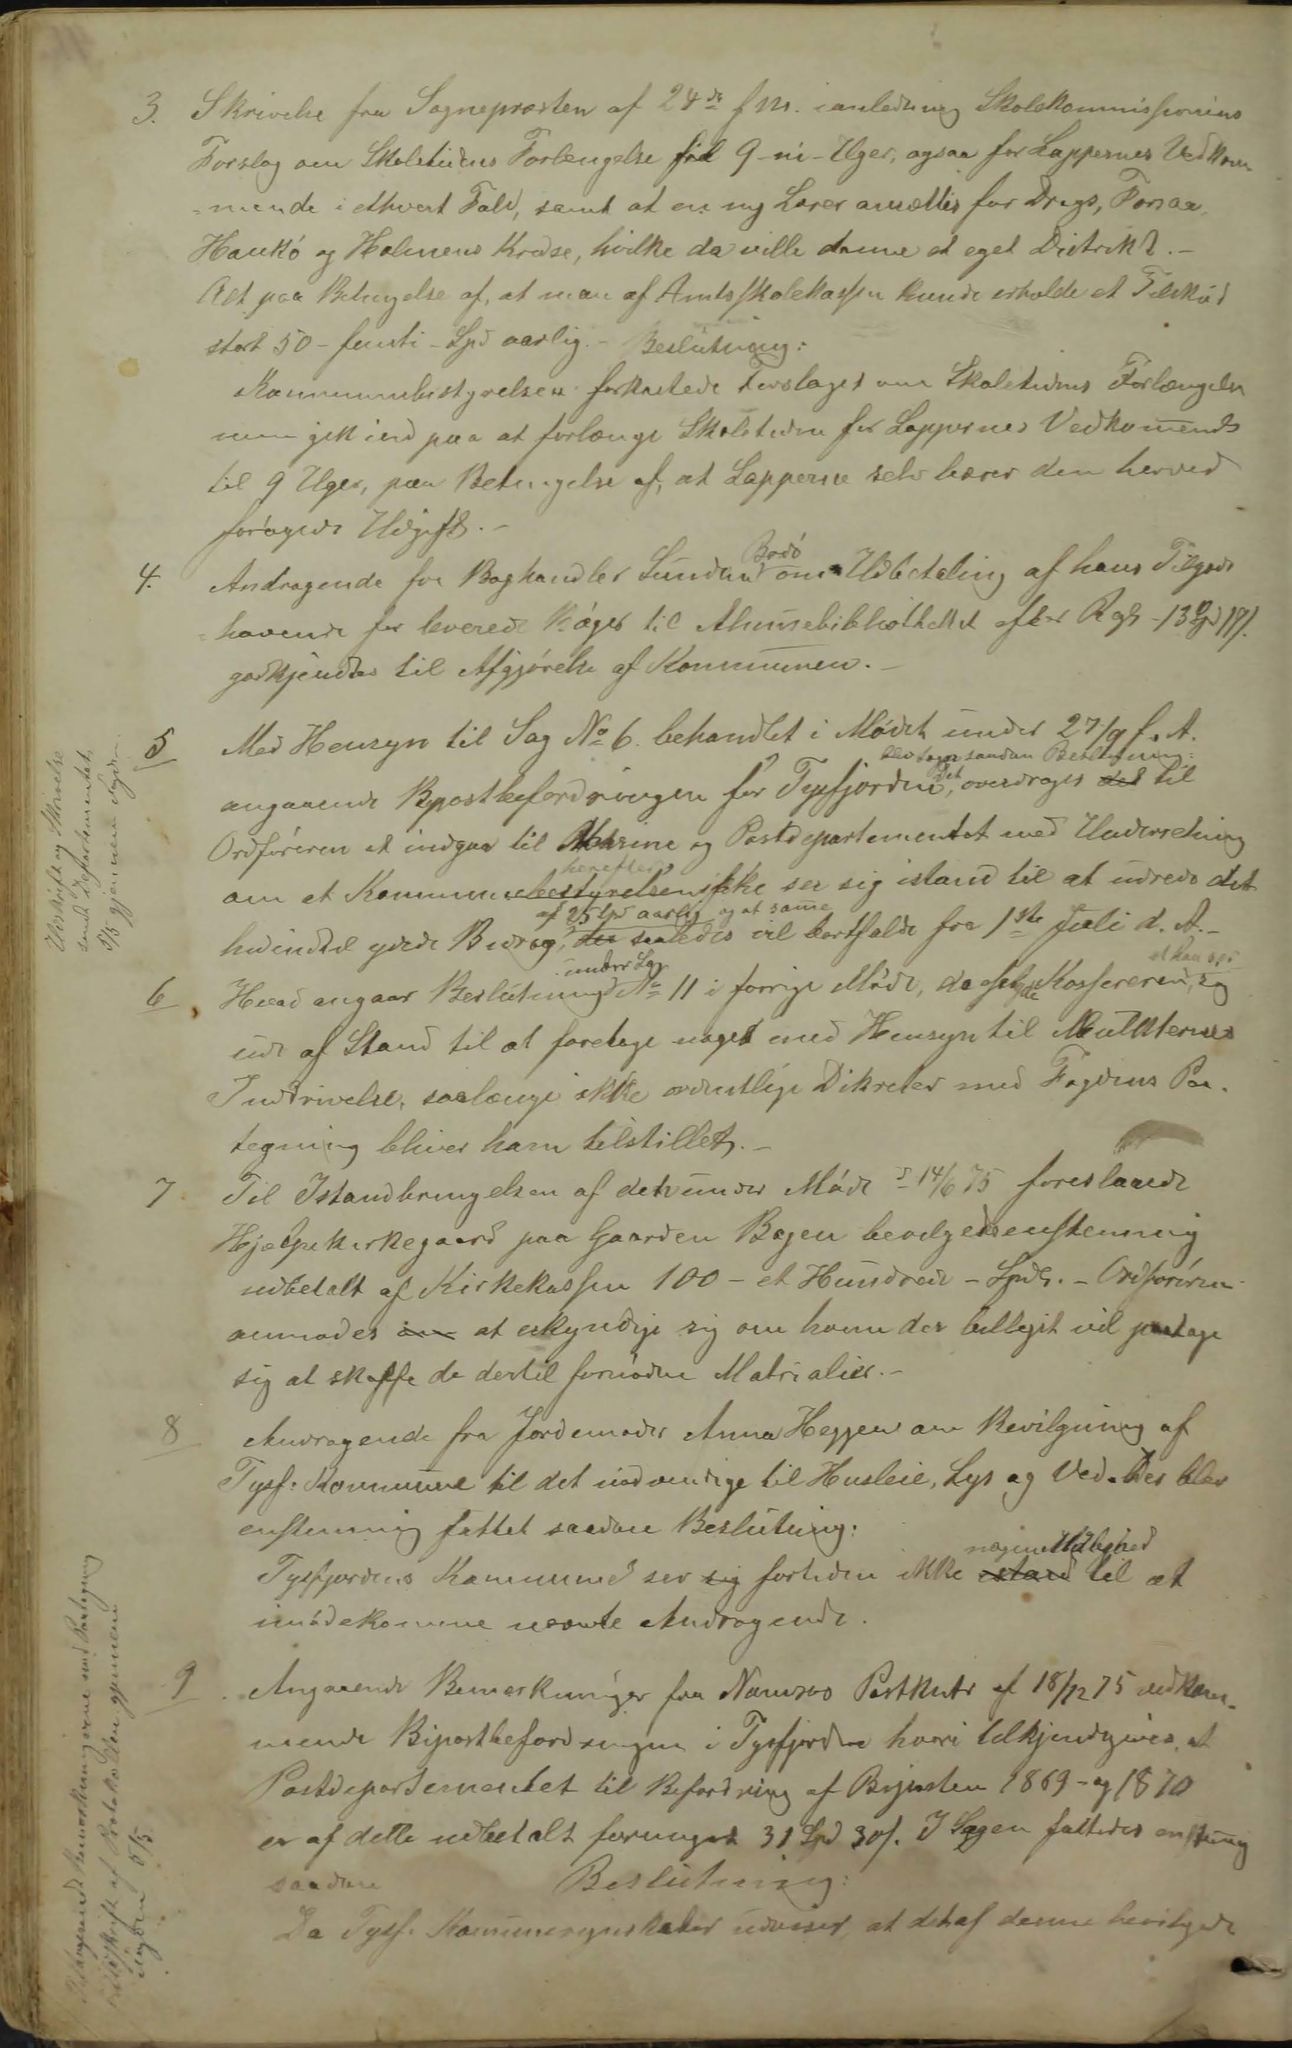 3. Skrivelse fra Sognepræsten af 24de f.M. i anledning Skolekommissionens
Forslag om Skoletidens Forlængelse til 9 - ni - Uger, ogsaa for Lappernes Vedkom-
mende i ethvert Fald, samt at en ny Lærer ansættes for Drags, Forsaa,
Haukö og Holmens Kredse, hvilke da ville danne et eget Distrikt. -
Alt paa Betingelse af, at man af Amtsskolekassen kunde erholde et Tilskud
stort 50 - femti - Spd aarlig. - Beslutning:
Kommunebestyrelsen forkastede Forslaget om Skoletidens Forlængelse
men gik ind paa at forlænge Skoletiden for Lappernes Vedkommende
til 9 Uger, paa Betingelse af, at Lapperne selv bærer den herved
forögede Udgift. -
4. Andragende fra Boghandler Lund Bodö om Udbetaling af hans Tilgode-
havende for leverede Böger til Almuebibliothekket efter Regn. 13 Spd
godkjendtes til Afgjörelse af Kommunen. -
5 Med Hensyn til Sag No 6 behandlet i Mödet under 27/9 f.A.
blev tagen saadan Beslutning:
angaaende Bipostbefordringen for Tysfjorden, Det overdrages det til
Ordföreren at indgaa til Marine og Postdepartementet med Underretning
herefter
om at Kommunebestyrelsen ikke ser sig istand til at udrede det
af 25 Spd aarlig og at samme
hidindtil ydede Bidrag, der saaledes vil bortfalde fra 1ste Juli d.A. -
under Sag at han ser
6 Hvad angaar Beslutning No 11 i forrige Möde, da Kassereren sig
ude af Stand til at foretage noget med Hensyn til Mulkternes
Inddrivelse, saalænge ikke ordentlige Dikreter med Fogdens Paa-
tegning bliver ham tilstillet. -
7 Til Istandbringelsen af det under Möde 14/6 75 foreslaaede
Hjælpekirkegaard paa Gaarden Bogen bevilgedes enstemmig
udbetalt af Kirkekassen 100 - et Hundrede - Spdlr. - Ordföreren
anmodes om at erkyndige sig om hvem der billigst vil paatage
sig at skaffe de dertil fornödne Matrialier. -
8 Andragende fra Jordemoder Anna Heggen om Bevilgning af
Tysf. Kommune til det nödvendige til Husleie, Lys og Ved. Der blev
enstemmig fattet saadan Beslutning:
nogen Udvei
Tysfjordens Kommune ser sig fortiden ikke istand til at
imödekomme nævnte Andragende.
9 Angaaende Bemærkninger fra Namsos Postkontr af 18/12 75 vedkom-
mende Bipostbefordringen i Tysfjorden hvori tilkjendegives, at
Postdepartementet til Befordring af Biposten 1869 - og 1870
er af dette udbetalt formeget 31 Spd 30 s. I Sagen fattedes enstemmig
saadan Beslutning:
Da Tysf. Kommuneregnskaber udviser, at det af denne bevilgede
Udskrift og Skrivelse
sendt Departementet
5/5 gjennem Fogden.
Bemærkningerne med Paategning
Udskrift af Protokollen gjennem
Fogden 5/5.